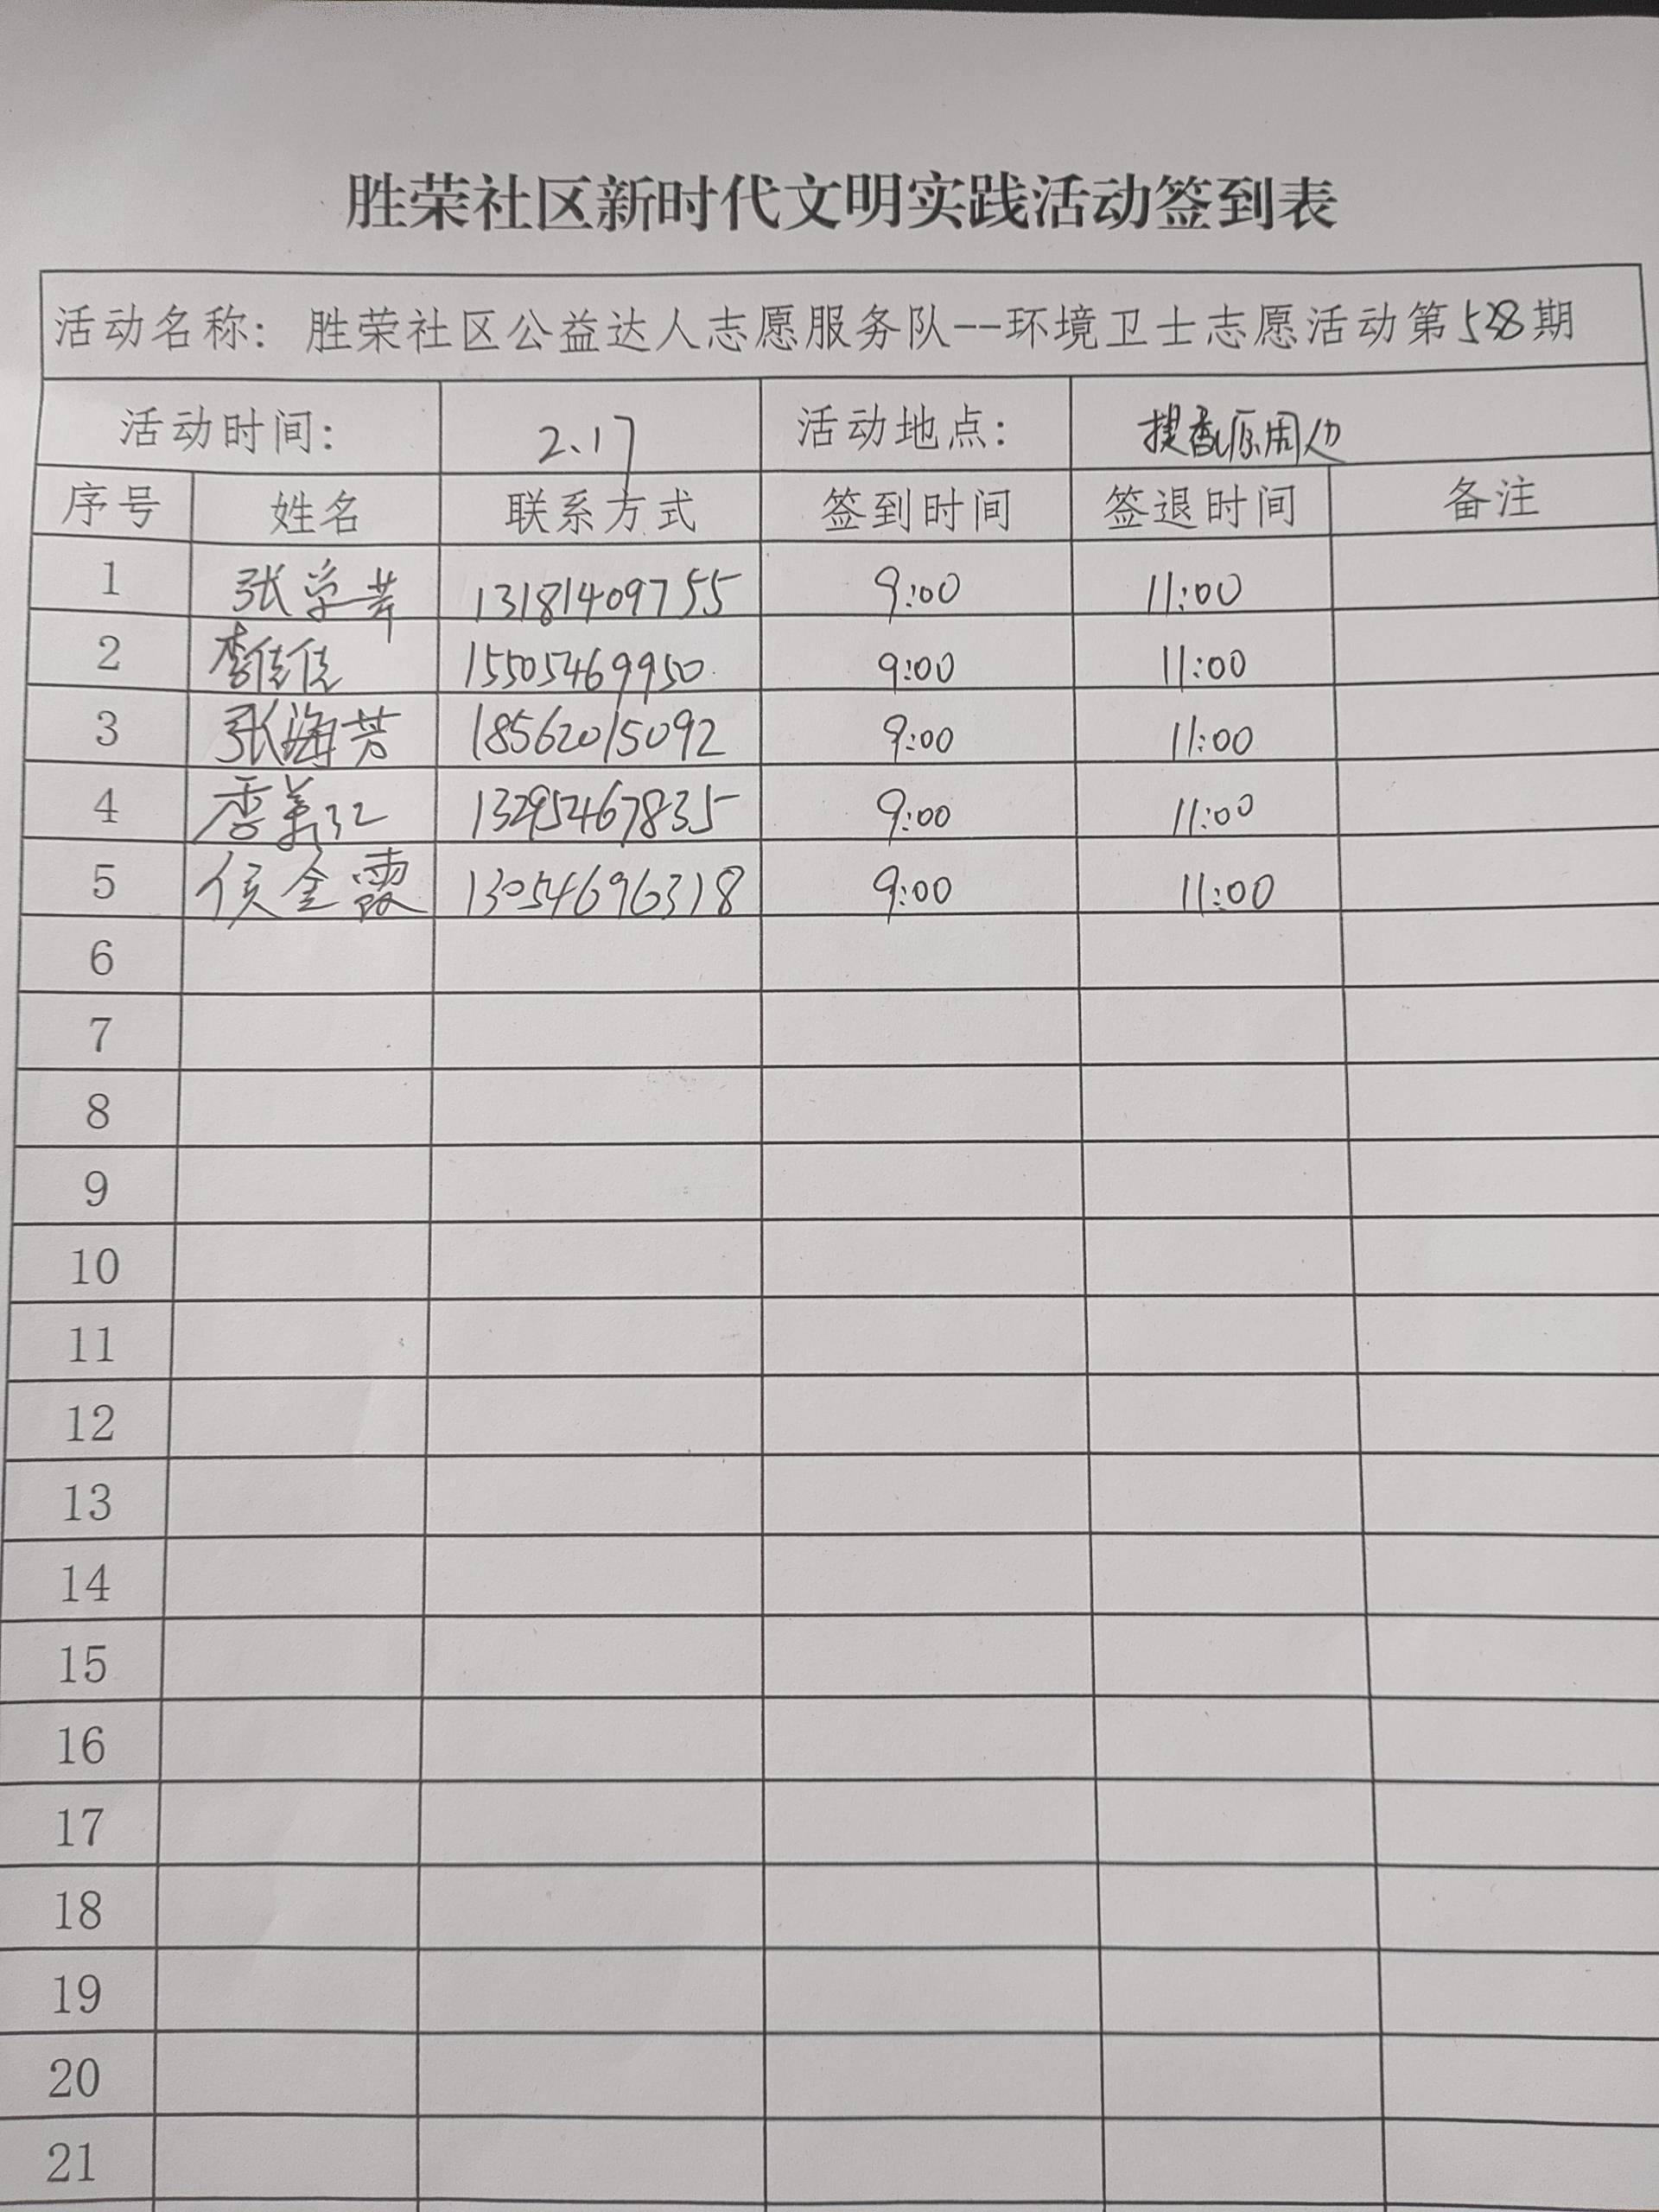 胜荣社区新时代文明实践活动签到表
活动名称：胜荣社区公益达人志愿服务队--环境卫士志愿活动第528期
活动时间： 2.17 活动地点： 周边
序号 姓名 联系方式 签到时间 签退时间 备注
1 张学芹 13181409755 9:00 11:00
2 李佳佳 15505469950 9:00 11:00
3 张海芳 18562015092 9:00 11:00
4 季美江 13295467835 9:00 11:00
5 侯金霞 13054696318 9:00 11:00
6
7
8
9
10
11
12
13
14
15
16
17
18
19
20
21